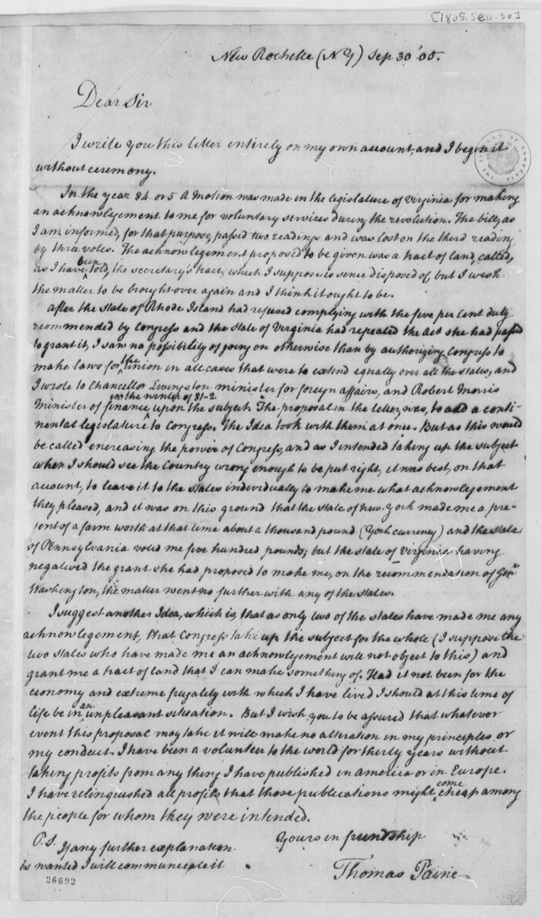 [1805, Sep. 30]
New Rochelle (NY) Sep 30 '05.
Dear Sir
I write you this letter entirely on my own account, and I begin it
without ceremony.
In the year 84 or 5 A motion was made in the legislature of Virginia for making
an acknowlegement to me for voluntary services during the revolution. The bill, as
I am informed, for that purpose, passed two readings and was lost on the third reading
by three votes. The acknowlegement proposed to be given was a tract of land, called,
as I have been told, the secretary's tract, which I suppose is since disposed of, but I wish
the matter to be brought over again and I think it ought to be.
After the state of Rhode Island had refused complying with the five per cent duty
recommended by Congress and the state of Virginia had repealed the Act she had passed
to grant it, I saw no possibility of going on otherwise than by authorising Congress to
make laws for the Union in all cases that were to extend equally over all the states, and
I wrote to Chancellor Livingston minister for foreign affairs, and Robert Morris
Minister of finance in the winter of 81-2 upon the subject. The proposal in the letter, was, to add a conti-
nental legislature to Congress. The Idea took with them at once. But as this would
be called encreasing the power of Congress, and as I intended taking up the subject
when I should see the Country wrong enough to be put right, it was best, on that
account, to leave it to the states individually to make me what acknowlegement
they pleased, and it was on this ground that the state of new-york made me a pre-
sent of a farm worth at that time about a thousand pound (York currency) and the state
of Pennsylvania voted me five hundred pounds; but the state of Virginia having
negatived the grant she had proposed to make me, on the recommendation of Genl.
Washington, the matter went no further with any of the states.
I suggest another Idea, which is, that as only two of the states have made me any
acknowlegement, that Congress take up the subject for the whole (I suppose the
two states who have made me an acknowlegement will not object to this) and
grant me a tract of land that I can make something of. Had it not been for the
economy and extreme frugality with which I have lived I should at this time of
life be in an unpleasant situation. But I wish you to be assured that whatever
event this proposal may take it will make no alteration in my principles, or
my conduct. I have been a volunteer to the world for thirty years without
taking profits from any thing I have published in America or in Europe.
I have relinquished all profits that those publications might come cheap among
the people for whom they were intended.
Yours in friendship
Thomas Paine
P.S. If any further explanation
be wanted I will communicate it
26692